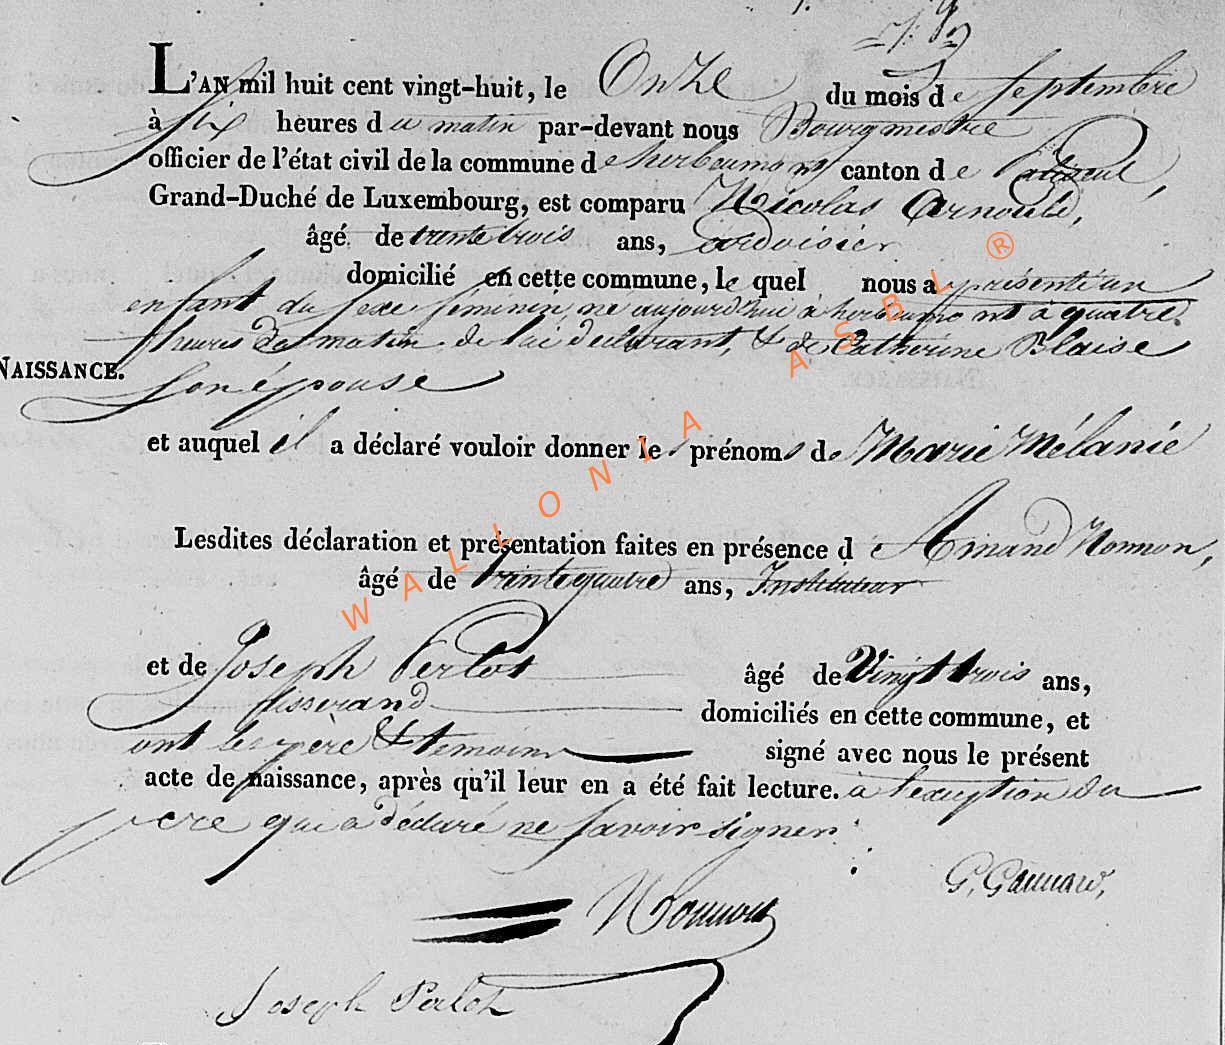 L'AN mil huit cent vingt-huit, le Onze du mois de Septembre
à Six heures du matin par-devant nous Bourgmestre
officier de l'état civil de la commune de herbeumont canton de Paliseul,
Grand-Duché de Luxembourg, est comparu Nicolas Arnould,
âgé de trente trois ans, ardoisier
domicilié en cette commune, le quel nous a présenté un
enfant du sexe feminin, né aujourd'hui à herbeumont à quatre
heures du matin de lui déclarant, & de Catherine Blaise
NAISSANCE.
Son épouse
et auquel il a déclaré vouloir donner les prénoms de Marie Mélanie
Lesdites déclaration et présentation faites en présence d e Amand Nonnon,
âgé de trente quatre ans, Instituteur
et de Joseph Perlot âgé de Vingt trois ans,
tisserand domiciliés en cette commune, et
ont les père & temoins signé avec nous le présent
acte de naissance, après qu'il leur en a été fait lecture. à l'exception du
père qui a déclaré ne savoir signer.
Nonnon
Joseph Perlot
WALLONIA ASBL ®